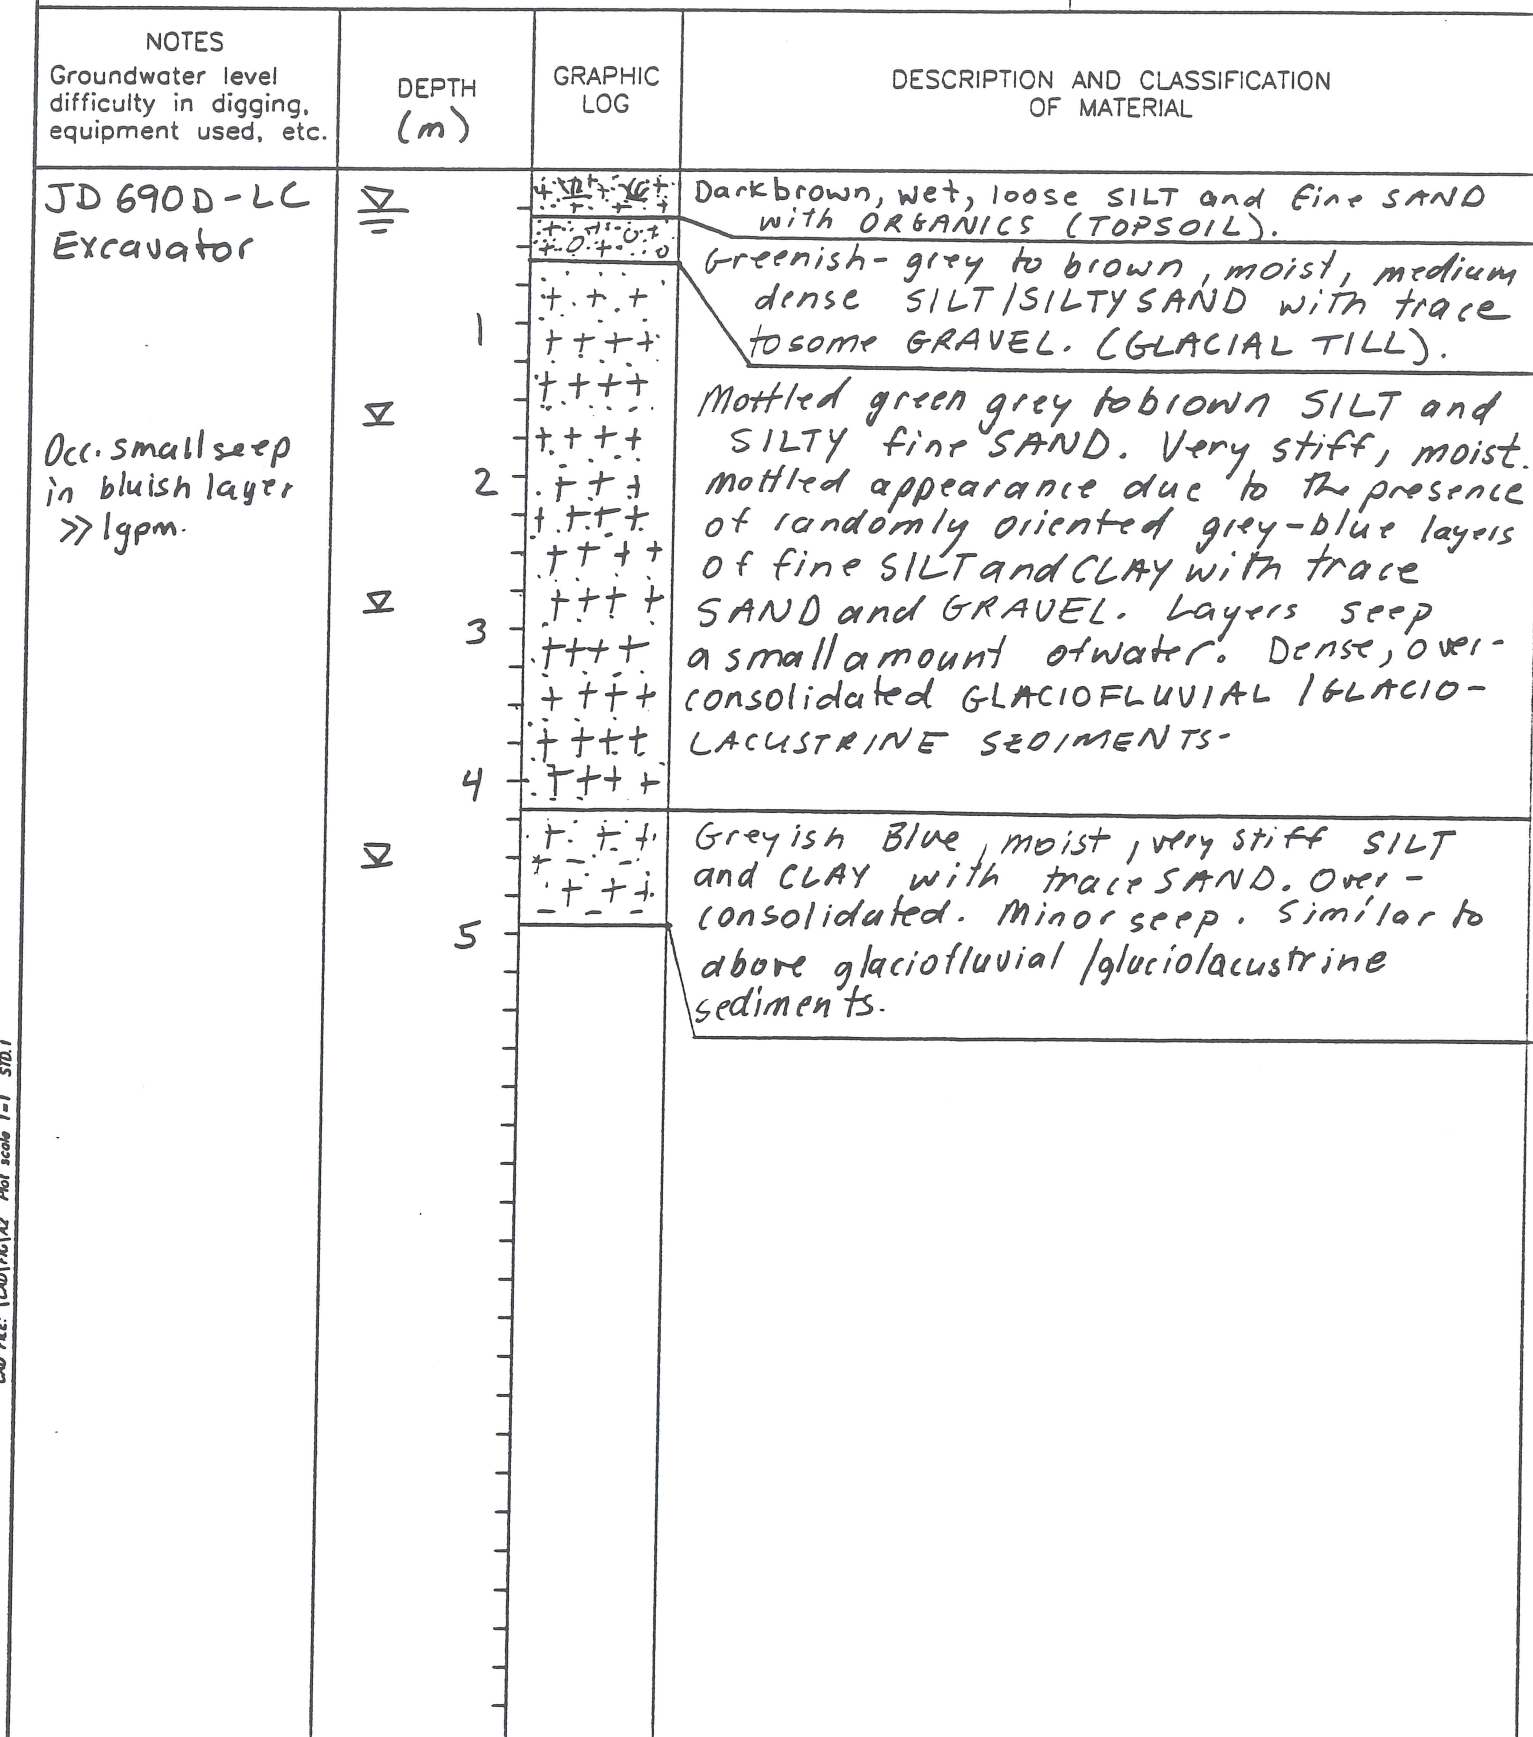 NOTES
Groundwater level
difficulty in digging,
equipment used, etc.
DEPTH
(m)
GRAPHIC
LOG
DESCRIPTION AND CLASSIFICATION
OF MATERIAL
JD 690D-LC
Excavator
Occ. small seep
in bluish layer
≫ 1gpm.
1
2
3
4
5
Dark brown, wet, loose SILT and fine SAND
with ORGANICS (TOPSOIL).
Greenish-grey to brown, moist, medium
dense SILT/SILTY SAND with trace
to some GRAVEL. (GLACIAL TILL).
Mottled green grey to brown SILT and
SILTY fine SAND. Very stiff, moist.
Mottled appearance due to the presence
of randomly oriented grey-blue layers
of fine SILT and CLAY with trace
SAND and GRAVEL. Layers seep
a small amount of water. Dense, over-
consolidated GLACIOFLUVIAL /GLACIO-
LACUSTRINE SEDIMENTS-
Greyish Blue, moist, very stiff SILT
and CLAY with trace SAND. Over-
consolidated. Minor seep. Similar to
above glaciofluvial /glaciolacustrine
sediments.
CAD FILE: \CAD\FIG\A2 Plot scale 1=1 STD.1